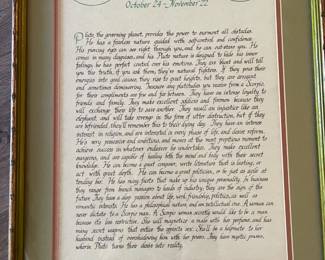 October 24 - November 22
Pluto, the governing planet, provides the power to surmount all obstacles.
He has a fearless nature guided with self-control and confidence.
His piercing eyes can see right through you, and he can out-stare you. He
comes in many disguises, and his Pluto nature is designed to hide his inner
feelings; he has perfect control over his emotions. They are blunt and will tell
you the truth, if you ask them; they're natural fighters. If they press their
energies into good causes, they rise to great heights, but they are arrogant
and sometimes domineering. Treasure any gratuities you receive from a Scorpio,
for their compliments are few and far between. They have an intense loyalty to
friends and family. They make excellent soldiers and firemen because they
will exchange their life to save another. They recall an injustice like an
elephant, and will take revenge in the form of utter destruction, but if they
are befriended, they'll remember this to their dying day. They have an intense
interest in religion, and are interested in every phase of life, and desire reform.
He's very possessive and ambitious, and moves at the most propitious moment to
achieve success in whatever endeavor he undertakes. They make excellent
surgeons, and are capable of healing both the mind and body with their secret
knowledge. He can become a great composer, write literature that is lasting, or
act with great depth. He can become a great politician, or be just as agile at
tending bar. He has many facets that make up his unique personality, be
they range from branch managers to heads of industry; they are the sign of the
future. They have a deep passion about life, work, friendship, politics, as well as
romantic interests. He has a philosophical nature, and an intellectual one. A woman can
never dictate to a Scorpio man. A Scorpio woman secretly would like to be a man
because it's less restrictive. She will magnetize a male with her perfume, and has
many secret weapons that entice the opposite sex. She'll be a helpmate to her
husband instead of overshadowing him with her power. They have mystic powers,
wherein Pluto turns their desire into reality.